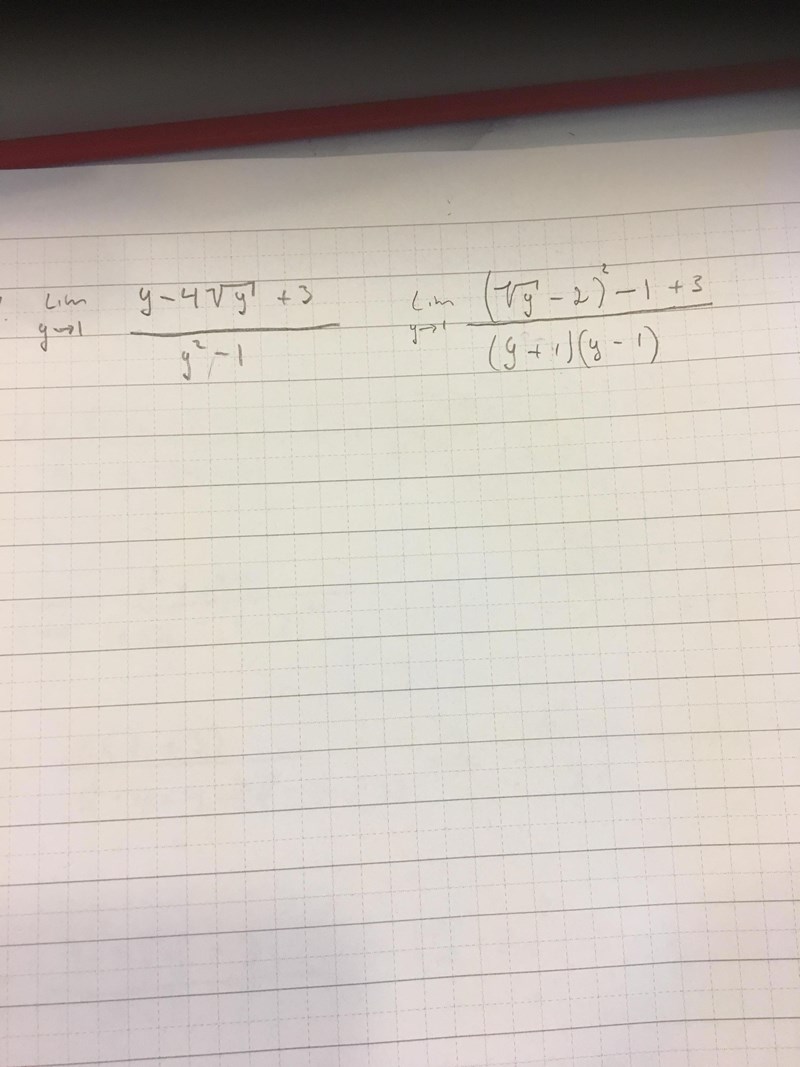 lim y→1 (y - 4√y + 3) / (y² - 1)
lim y→1 ((√y - 2)² - 1 + 3) / ((y + 1)(y - 1))